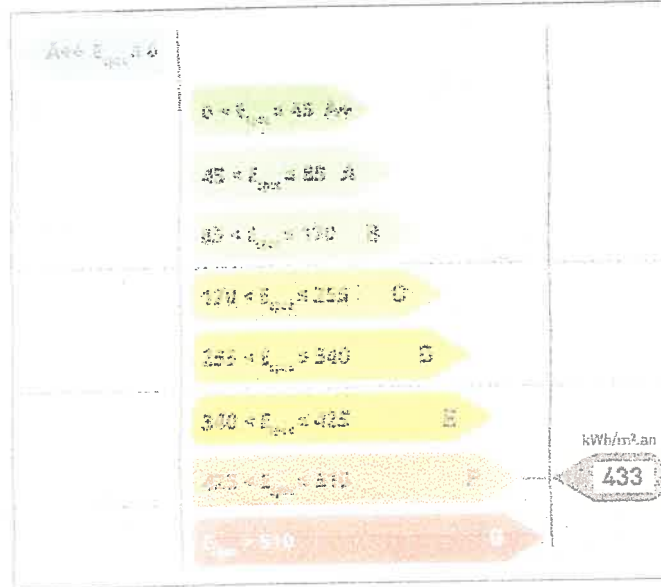 A++ E_spec ≤ 0
0 < E_spec ≤ 45 A+
45 < E_spec ≤ 85 A
85 < E_spec ≤ 170 B
170 < E_spec ≤ 255 C
255 < E_spec ≤ 340 D
340 < E_spec ≤ 425 E
kWh/m².an
425 < E_spec ≤ 510 F
433
E_spec > 510 G